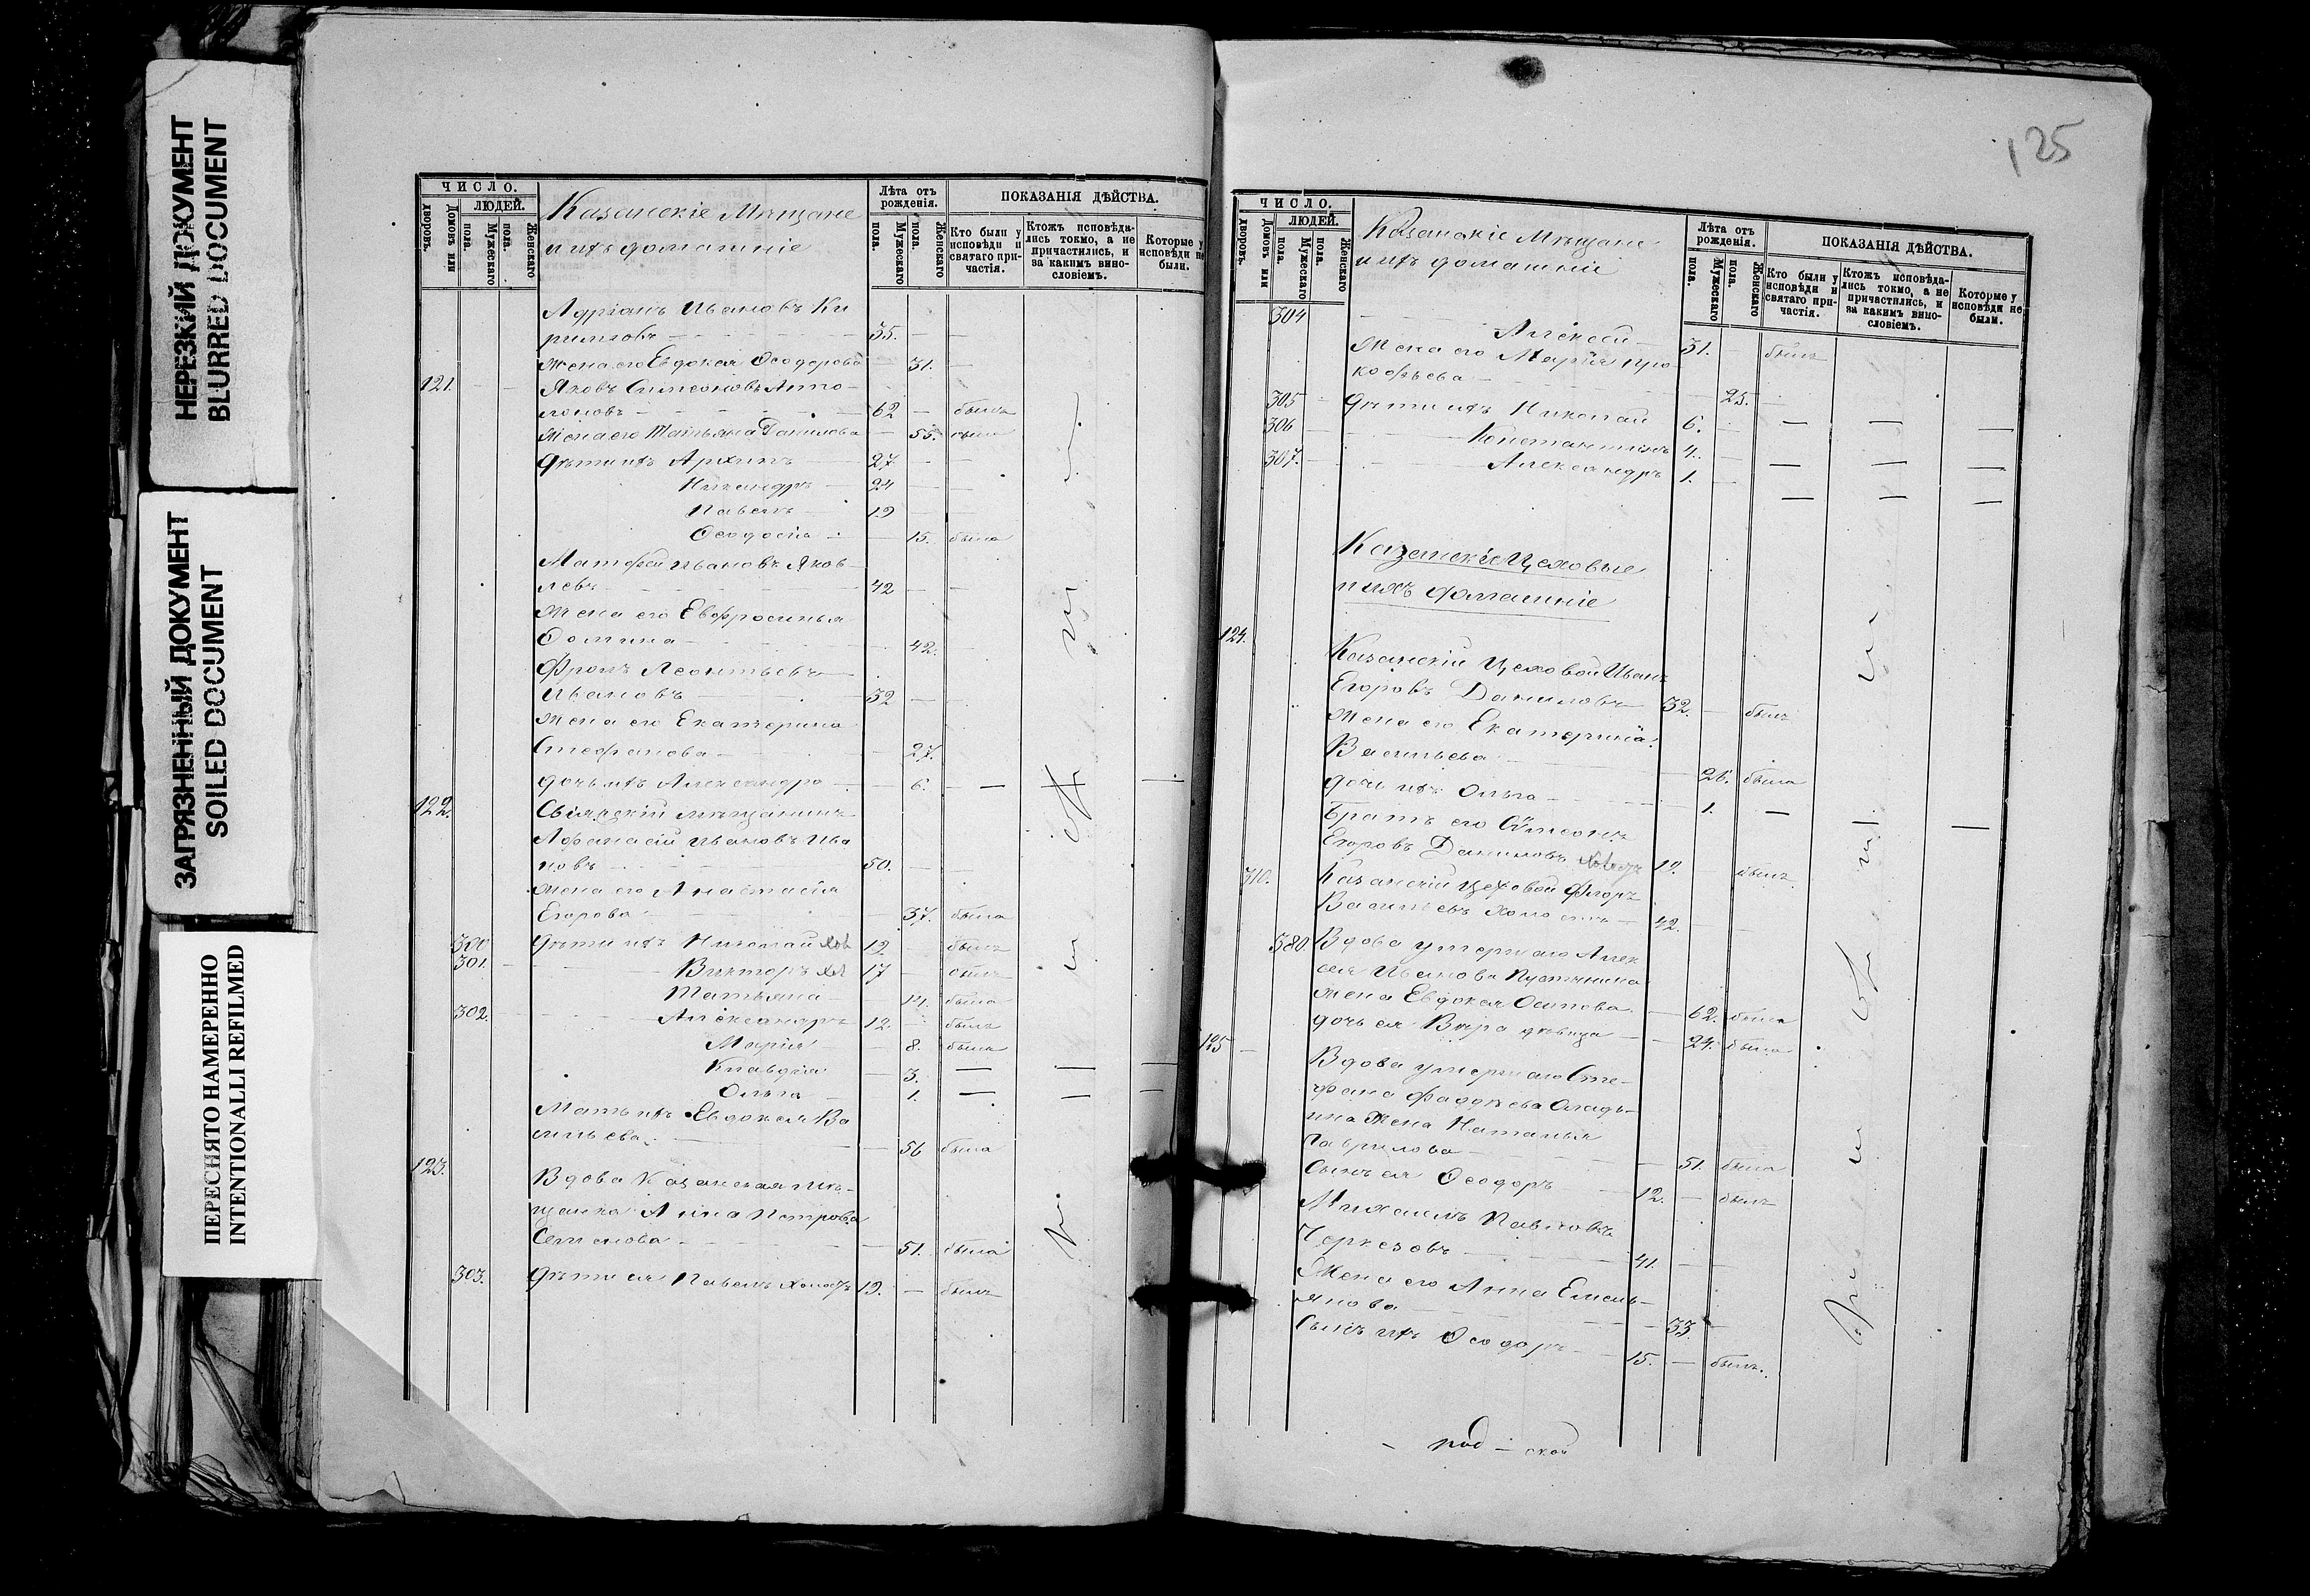 НЕРЕЗКИЙ ДОКУМЕНТ
BLURRED DOCUMENT
ЗАГРЯЗНЕННЫЙ ДОКУМЕНТ
SOILED DOCUMENT
ПЕРЕСНЯТО НАМЕРЕННО
INTENTIONALLI REFILMED
ЧИСЛО.
ЛЮДЕЙ.
Домовъ или дворовъ.
Мужескаго пола.
Женскаго пола.
Казанскіе Мѣщане
и ихъ домашніе
Лѣта отъ рожденія.
Мужескаго пола.
Женскаго
ПОКАЗАНІЯ ДѢЙСТВА.
Кто были у исповѣди и святаго причастія.
Ктожъ исповѣдались токмо, а не причастились, и за какимъ винословіемъ.
Которые у исповѣди не были.
Адріанъ Ивановъ Ки
риловъ 35.
Жена его Евдокія Ѳеодорова 31.
121. Яковъ Симеоновъ
62 былъ
Жена его Татьяна Данилова 55. была
Дѣти ихъ Архипъ 27
Никандръ 24
Павелъ 19
Ѳеодосія 15. была
Матфей Ивановъ Яков
левъ 42
Жена его Евфросинья
Ѳомина 42.
Фролъ Леонтьевъ
Ивановъ 32
Жена его Екатерина
Стефанова 27.
дочь ихъ Александра 6.
122. Свіяжскій мѣщанинъ
Афанасій Ивановъ Ива
новъ 50.
Жена его Анастасія
Егорова 37. была
300 Дѣти ихъ Николай хол 19 былъ
301. Викторъ хол 17 былъ
Татьяна 14. была
302. Александръ 12. былъ
Марія 8. была
Клавдія 3.
Ольга 1.
Мать ихъ Евдокія Ва
сильева 56 была
123.
Вдова Казанская мѣ-
щанка Анна Петрова
Семенова 51. была
303. Дѣти ея Павелъ холостъ 19. былъ
125
ЧИСЛО.
ЛЮДЕЙ.
Домовъ или дворовъ.
Мужескаго пола.
Женскаго пола.
Казанскіе Мѣщане
и ихъ домашніе
Лѣта отъ рожденія.
Мужескаго пола.
Женскаго пола.
ПОКАЗАНІЯ ДѢЙСТВА.
Кто были у исповѣди и святаго причастія.
Ктожъ исповѣдались токмо, а не причастились, и за какимъ винословіемъ.
Которые у исповѣди не были.
304 Алексей 31. былъ
Жена его Марія Про
кофьева 25.
305 Дѣти ихъ Николай 6.
306 Константинъ 4.
307. Александръ 1.
Казанскіе Цеховые
и ихъ домашніе
124.
Казанскій Цеховой Иванъ
Егоровъ Даниловъ 32. былъ
Жена его Екатерина
Васильева была
дочь ихъ Ольга 1.
Братъ его Сѷмеонъ
Егоровъ Даниловъ 19. былъ
310. Казанскій цеховой Флоръ
Васильевъ 42.
380. Вдова умершаго Алек
сея Иванова
жена Евдокия Осипова 62. была
дочь ея Вѣра дѣвица 24. была
125
Вдова умершаго Сте-
фана Фаддѣева Оладь-
ина Жена Наталья
Гаврилова 51. была
Сынъ ея Ѳеодоръ 12. былъ
Михаилъ Павловъ
Черкезовъ 41.
Жена его Анна Емель-
янова 33.
Сынъ ихъ Ѳеодоръ 15. былъ.